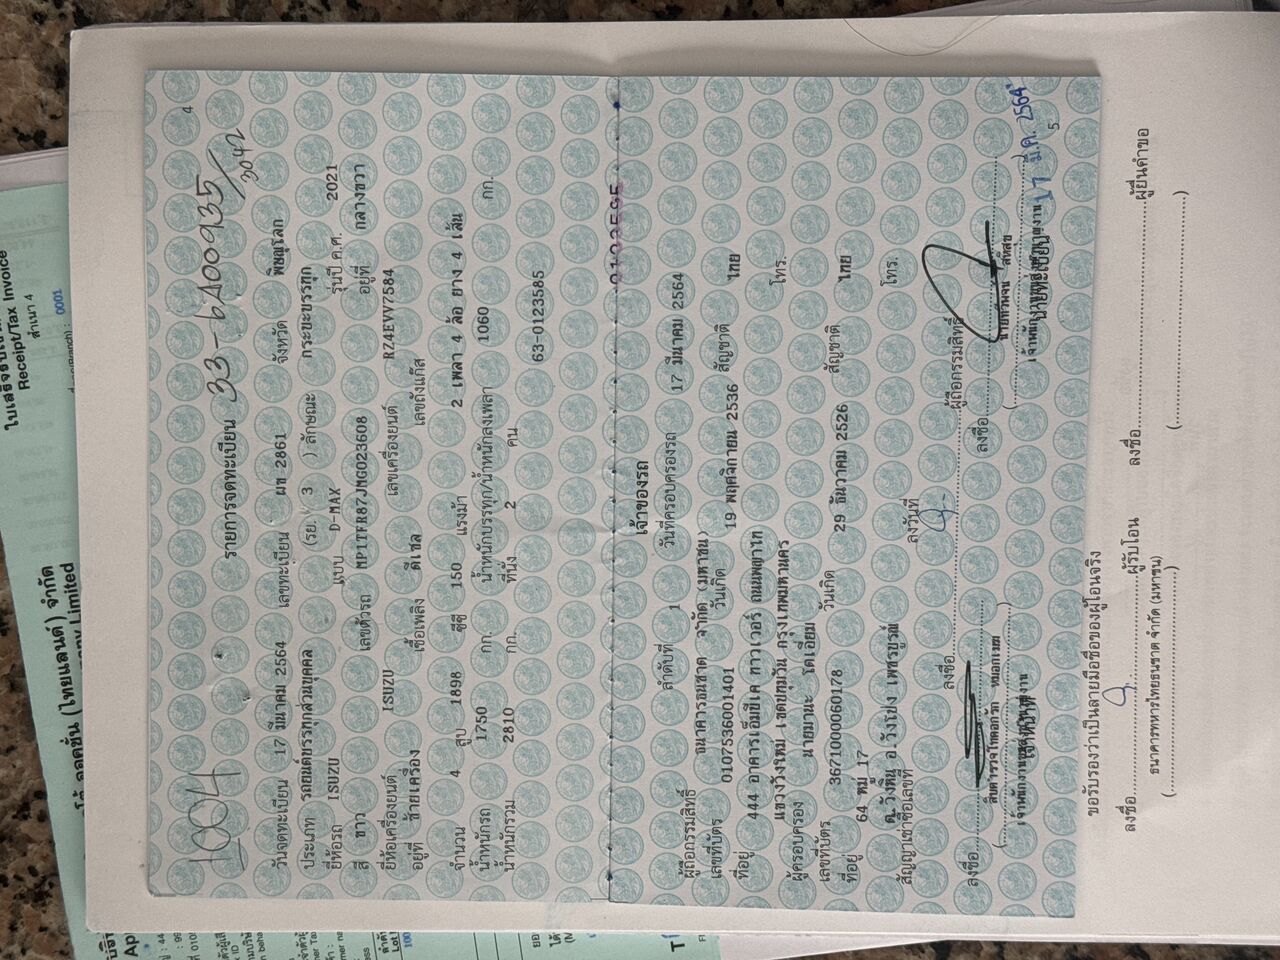 4
1004
รายการจดทะเบียน 33-6A00935/3042
วันจดทะเบียน 17 มีนาคม 2564 เลขทะเบียน ผข 2861 จังหวัด พิษณุโลก
ประเภท รถยนต์บรรทุกส่วนบุคคล (รย. 3 ) ลักษณะ กระบะบรรทุก
ยี่ห้อรถ ISUZU แบบ D-MAX รุ่นปี ค.ศ. 2021
สี ขาว เลขตัวรถ MP1TFR87JMG023608 อยู่ที่ กลางขวา
ยี่ห้อเครื่องยนต์ ISUZU เลขเครื่องยนต์ RZ4EVV7584
อยู่ที่ ซ้ายเครื่อง เชื้อเพลิง ดีเซล เลขถังแก๊ส
จำนวน 4 สูบ 1898 ซีซี 150 แรงม้า 2 เพลา 4 ล้อ ยาง 4 เส้น
น้ำหนักรถ 1750 กก. น้ำหนักบรรทุก/น้ำหนักลงเพลา 1060 กก.
น้ำหนักรวม 2810 กก. ที่นั่ง 2 คน
63-0123585
เจ้าของรถ
ลำดับที่ 1 วันที่ครอบครองรถ 17 มีนาคม 2564
ผู้ถือกรรมสิทธิ์ ธนาคารธนชาต จำกัด (มหาชน)
เลขที่บัตร 0107536001401 วันเกิด 19 พฤศจิกายน 2536 สัญชาติ ไทย
ที่อยู่ 444 อาคารเอ็มบีเค ทาวเวอร์ ถนนพญาไท
แขวงวังใหม่ เขตปทุมวัน กรุงเทพมหานคร โทร.
ผู้ครอบครอง นายมานะ โตเอี่ยม
เลขที่บัตร 3671000060178 วันเกิด 29 ธันวาคม 2526 สัญชาติ ไทย
ที่อยู่ 64 หมู่ 17
ต.วังหิน อ.วังโป่ง เพชรบูรณ์ โทร.
สัญญาเช่าซื้อเลขที่ ลงวันที่
ลงชื่อ ผู้ถือกรรมสิทธิ์
ลงชื่อ
ลงชื่อ
นายทะเบียน
17 มี.ค. 2564
5
ขอรับรองว่าเป็นลายมือชื่อของผู้โอนจริง
ลงชื่อ ผู้รับโอน ลงชื่อ ผู้ยื่นคำขอ
ธนาคารทหารไทยธนชาต จำกัด (มหาชน)
( ) ( )
Receipt/Tax Invoice
สำเนา 4
0001
(ไทยแลนด์) จำกัด
Limited